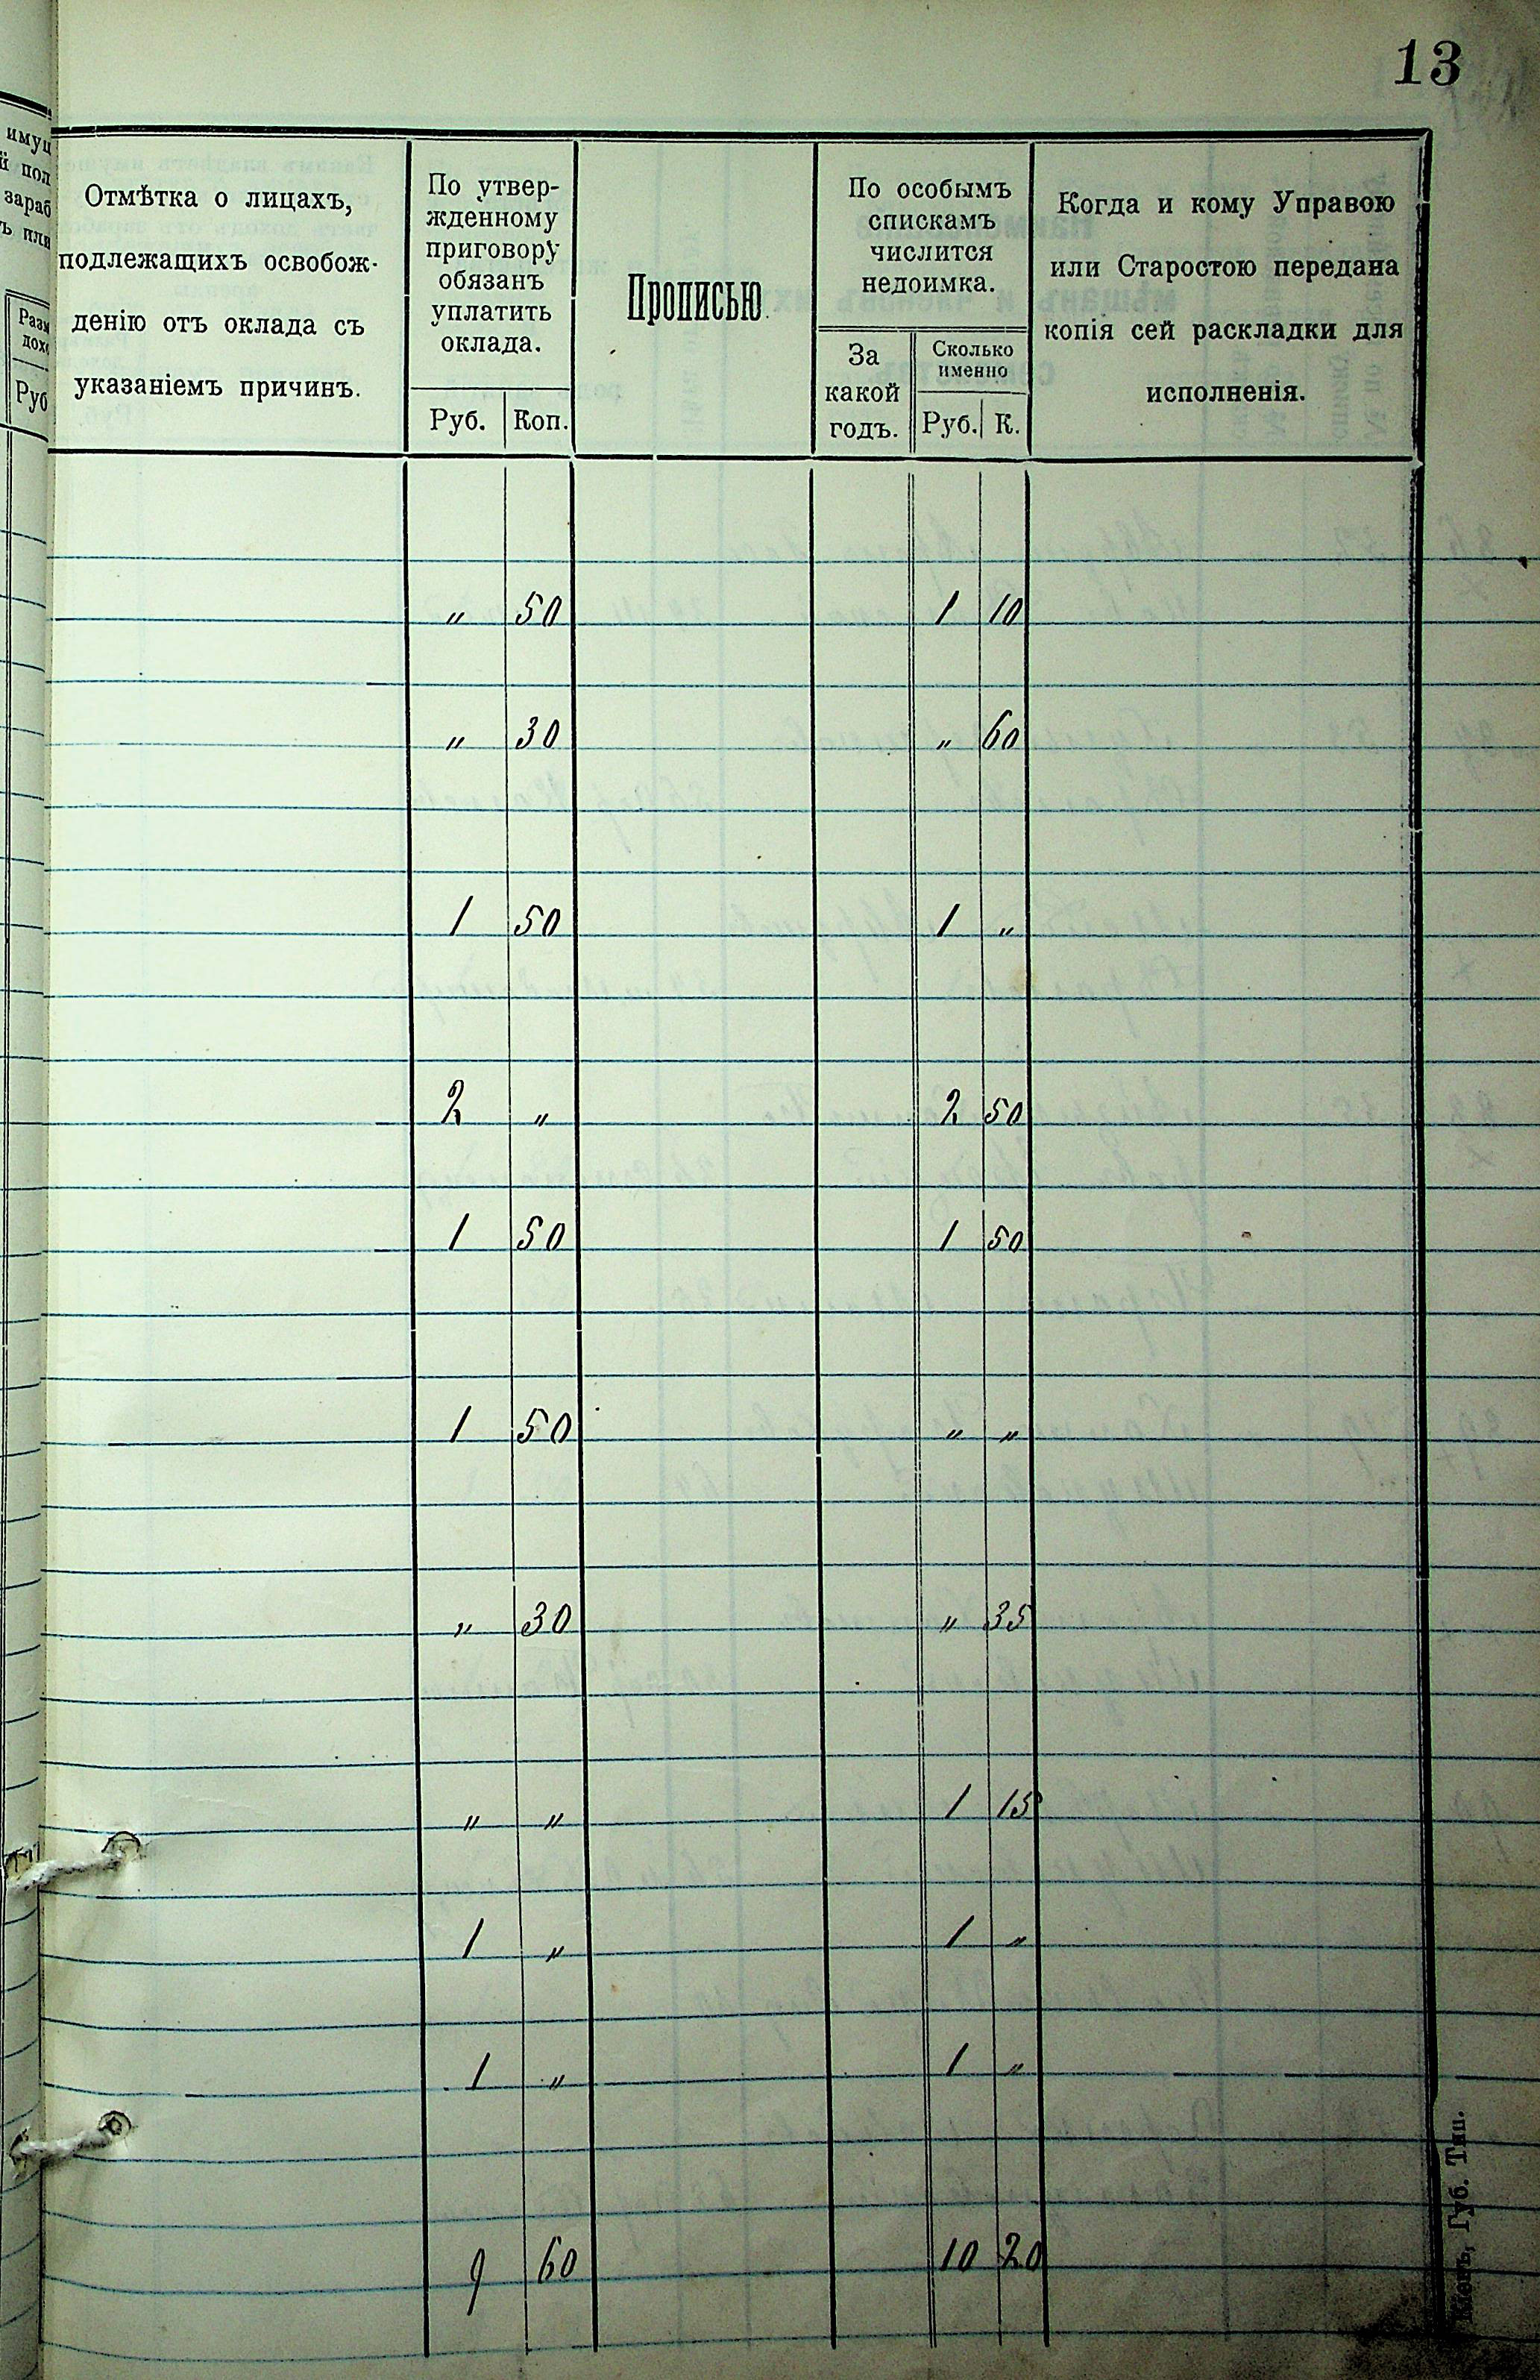 13
имущ
й пол
зараб
ъ пля
Разм
дохо
Руб
Отмѣтка о лицахъ,
подлежащихъ освобож-
денію отъ оклада съ
указаніемъ причинъ.
По утвер-
жденному
приговору
обязанъ
уплатить
оклада.
Руб. Коп.
Прописью.
По особымъ
спискамъ
числится
недоимка.
За
какой
годъ.
Сколько
именно
Руб. К.
Когда и кому Управою
или Старостою передана
копія сей раскладки для
исполненія.
" 50 1 10
" 30 " 60
1 50 1 "
2 " 2 50
1 50 1 50
1 50 " "
" 30 " 35
" " 1 15
1 " 1 "
1 " 1 "
9 60 10 20
Губ. Тип.